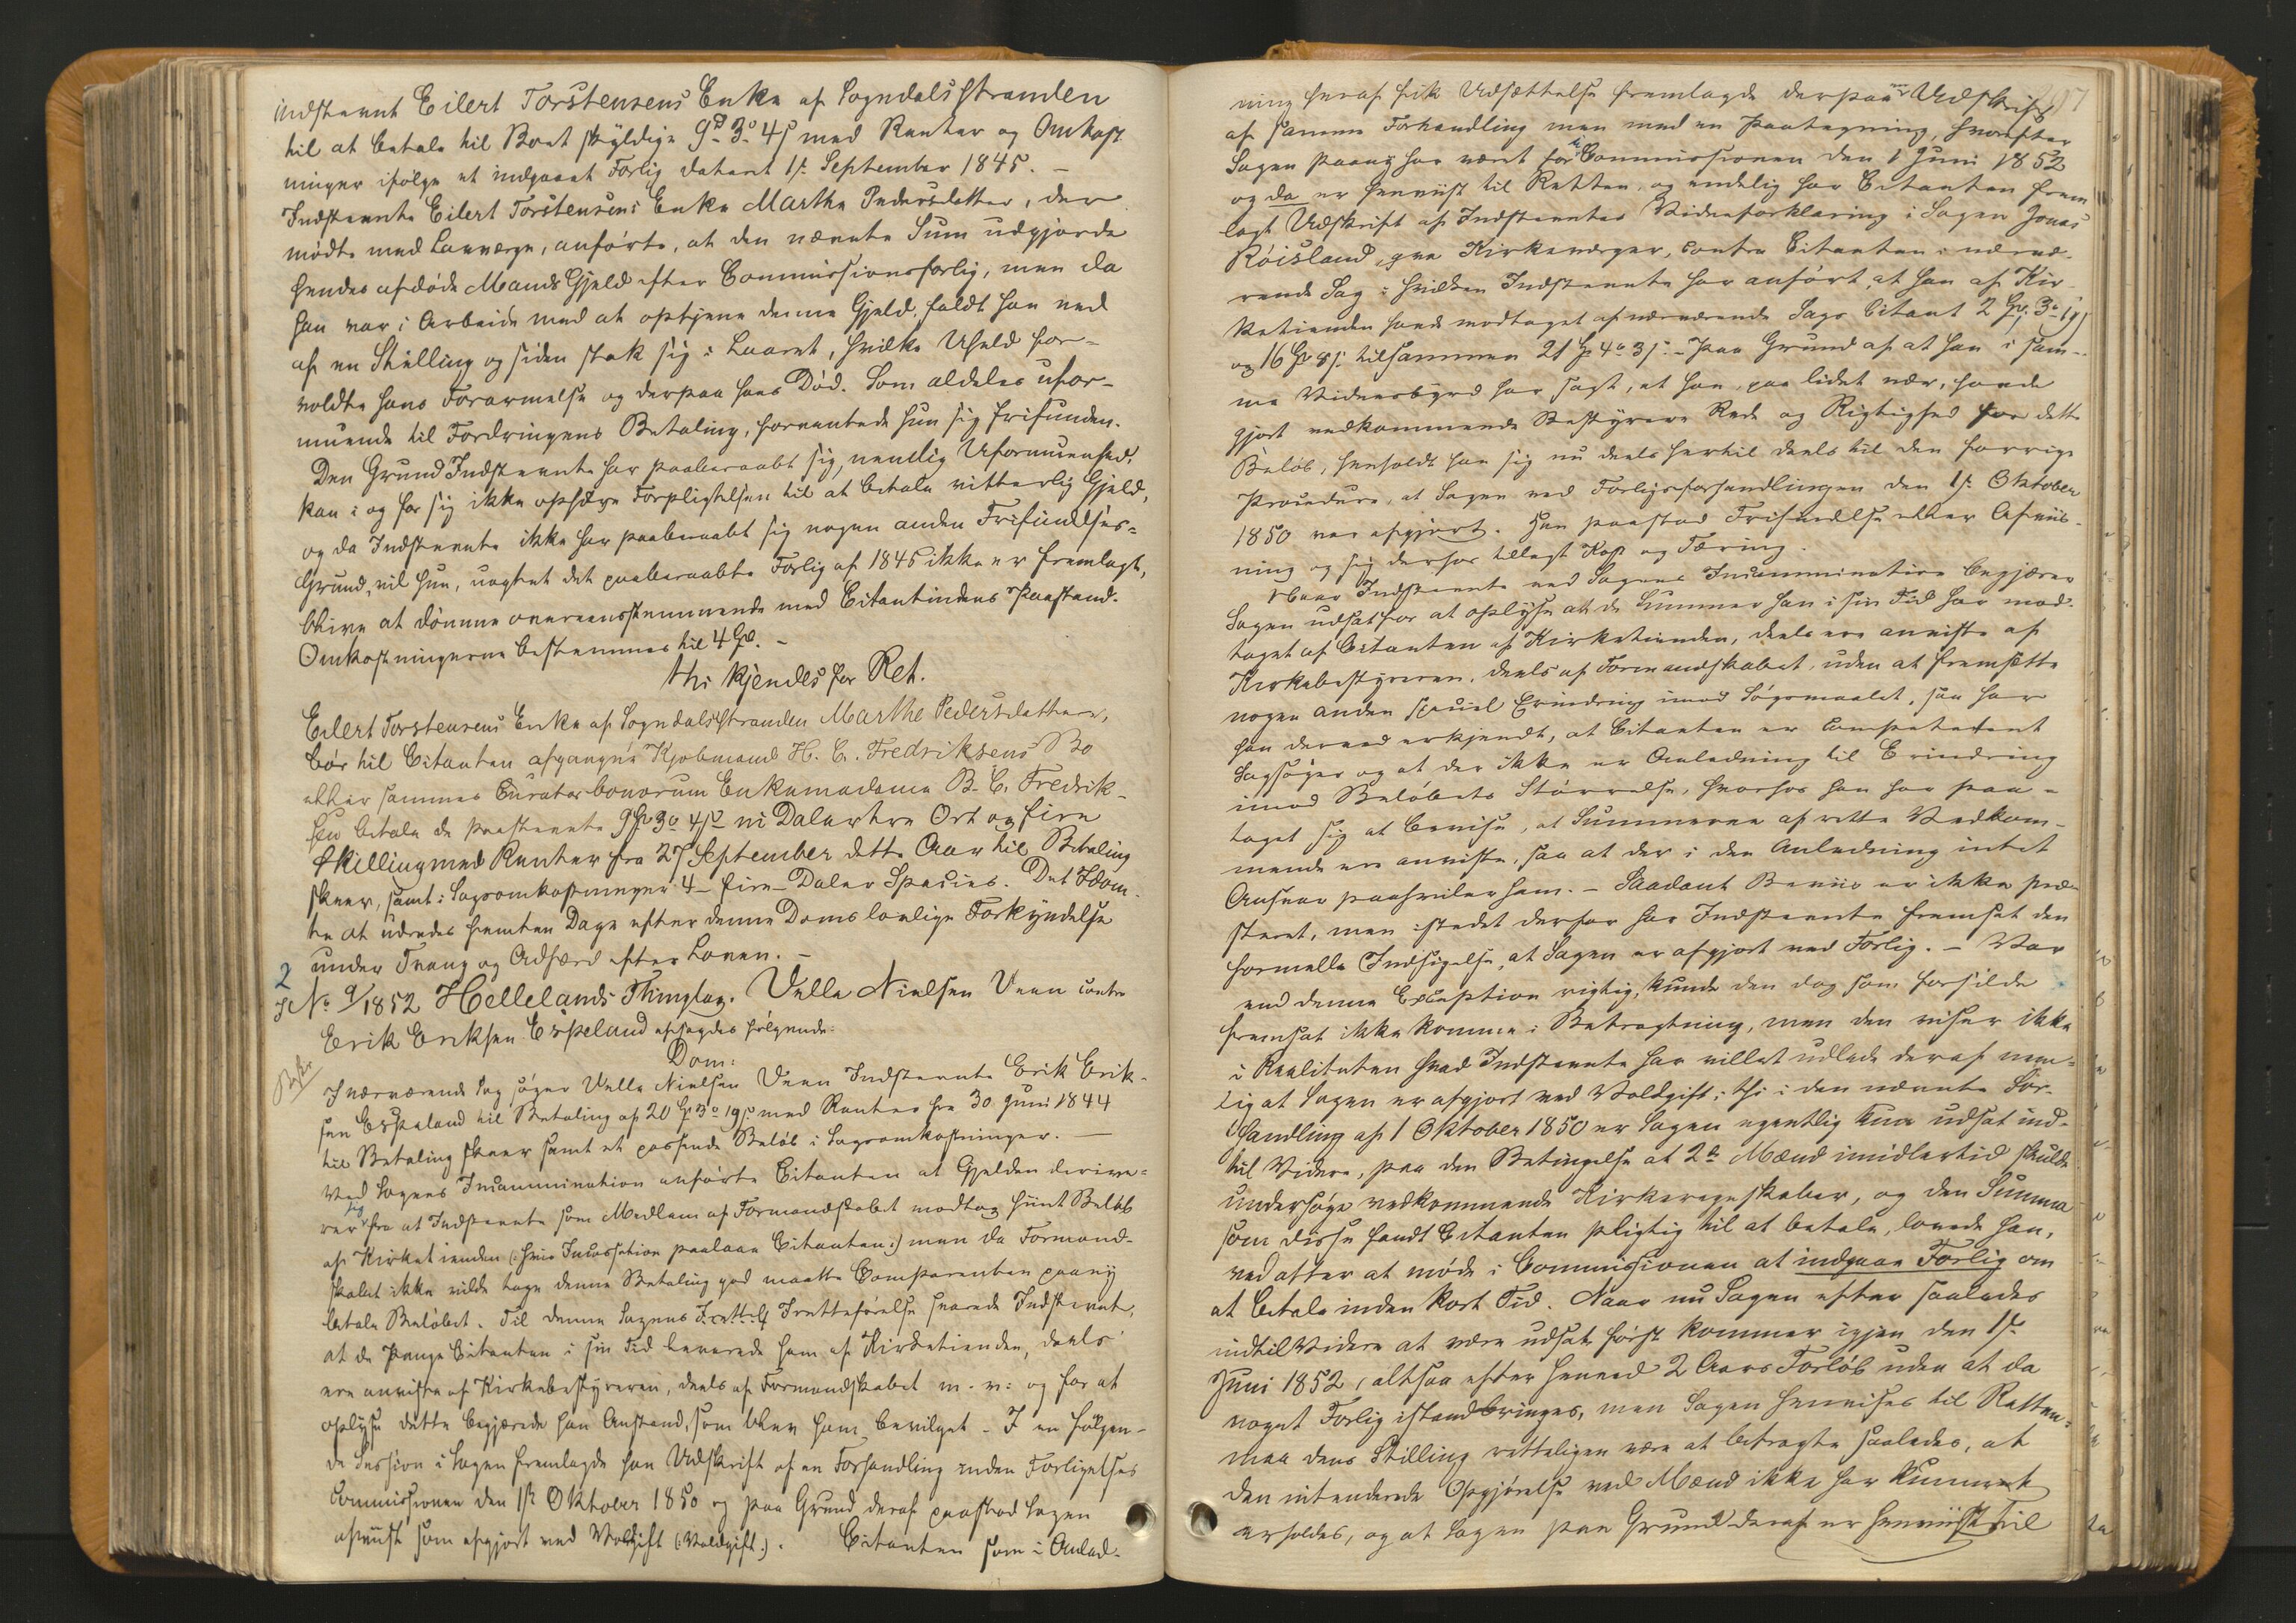 indstevnt Eilert Torstensens Enke af Sogndalsstranden
til at betale til Boet skyldige 9d 3o 4s med Renter og Omkost
ninger ifølge et indgaaet Forlig dateret 1s. September 1845. –
Indstevnte Eilert Torstensens Enke Marthe Pedersdatter, der
mødte med Laugværge, anførte, at den nævnte Sum udgjorde
hendes afdøde Mands Gjeld efter Commissionsforlig, men da
han var i Arbeide med at optjene denne Gjeld, faldt han ned
af en Stilling og siden stak sig i Laaret, hvilke Uheld for-
voldte hans Forarmelse og derpaa hans Død. Som aldeles ufor-
muende til Fordringens Betaling, forventede hun sig frifunden.
Den Grund Indstevnte har paaberaabt sig, nemlig Uformuenhed,
kan i og for sig ikke ophæve Forpligtelsen til at betale vitterlig Gjeld,
og da Indstevnte ikke har paaberaabt sig nogen anden Frifindelses=
Grund, vil hun, uagtet det paaberaabte Forlig af 1845 ikke er fremlagt,
blive at dømme overeensstemmende med Citantindens Paastand.
Omkostningerne bestemmes til 4 Spd. –
thi kjendes for Ret.
Eilert Torstensens Enke af Sogndalsstranden Marthe Pedersdatter,
bør til Citanten afgangne Kjøbmand H. C. Fredriksens Bo
eller sammes Curator bonorum Enkemadame B. C. Fredrik-
sen betale de paastevnte 9 Spd 3o 4s ni Daler tre Ort og fire
Skilling med Renter fra 27 September dette Aar til Betaling
skeer, samt i Sagsomkostninger 4 – fire – Daler Species. Det Idøm-
te at udredes femten Dage efter denne Doms lovlige Forkyndelse
under Tvang og Adfærd efter Loven. –
2
No 9/1852 Hellelands Thinglag. Velle Nielsen Veen contra
Erik Eriksen Espeland afsagdes følgende:
Dom:
I nærværende Sag søger Velle Nielsen Veen Indstevnte Erik Erik-
sen Espeland til Betaling af 20 Sp 3o 19s med Renter fra 30 Juni 1844
til Betaling skeer samt et passende Beløb i Sagsomkostninger. –
Ved Sagens Incammination anførte Citanten at Gjelden derive-
rer sig fra at Indstevnte som Medlem af Formandskabet modtog hiint Beløb
af Kirketienden (: hvis Incassation paalaae Citanten :) men da Formand-
skabet ikke vilde tage denne Betaling god maatte Comparenten paany
betale Beløbet. Til denne Sagens Iretteførelse svarede Indstevnte,
at de Penge Citanten i sin Tid leverede ham af Kirketienden, deels
ere anviste af Kirkebestyreren, deels af Formandskabet m. v: og for at
oplyse dette begjærede han Anstand, som blev ham bevilget. – I en følgen-
de Session i Sagen fremlagde han Udskrift af en Forhandling inden Forligelses
Commissionen den 1ste Oktober 1850 og paa Grund deraf paastod Sagen
afviist som afgjort ved Voldgift (: Voldgift :). Citanten som i Anled-
ning heraf fik Udsættelse fremlagde derpaa Udskrift
af samme Forhandling men med en Paategning, hvorefter
Sagen paany har været for Commissionen den 1 Juni 1852
og da er henviist til Retten, og endelig har Citanten frem
lagt Udskrift af Indstevntes Vidneforklaring i Sagen Jonas
Røisland, qva Kirkeværger, contra Citanten i nærvæ-
rende Sag i hvilken Indstevnte har anført, at han af Kir-
ketienden havde modtaget af nærværende Sags Citant 2 Sp. 3o 19s
og 16 Sp 8s. tilsammen 21 Sp 4o 3s. – Paa Grund af at han i sam-
me Vidnesbyrd har sagt, at han, paa lidet nær, havde
gjort vedkommende Bestyrere Rede og Rigtighed for dette
Beløb, henholdt han sig nu deels hertil deels til den forrige
Procedure, at Sagen ved Forligsforhandlingen den 1s. Oktober
1850 var afgjort. Han paastod Frifindelse eller Afviis-
ning og sig derfor tillagt Kost og Tæring.
Naar Indstevnte ved Sagens Incammination begjærer
Sagen udsat for at oplyse at de Summer han i sin Tid har mod-
taget af Citanten af Kirketienden, deels ere anviste af
Kirkebestyreren, deels af Formandskabet, uden at fremsætte
nogen anden speciel Erindring imod Søgsmaalet, saa har
han derved erkjendt, at Citanten er competent
Sagsøger og at der ikke er Anledning til Erindring
imod Beløbets Størrelse, hvorhos han har paa-
taget sig at bevise, at Summerne af rette Vedkom-
mende ere anviste, saa at der i den Anledning intet
Ansvar paahviler ham. – Saadant Beviis er ikke præ-
steret, men istedet derfor har Indstevnte fremsat den
formelle Indsigelse, at Sagen er afgjort ved Forlig. – Var
end denne Exception rigtig, kunde den dog som forsilde
fremsat ikke komme i Betragtning, men den viser ikke
i Realiteten hvad Indstevnte har villet udlede deraf nem-
lig at Sagen er afgjort ved Voldgift; thi i den nævnte For-
handling af 1 Oktober 1850 er Sagen egentlig kun udsat ind-
til Videre, paa den Betingelse at 2de Mænd imidlertid skulde
undersøge vedkommende Kirkeregnskaber, og den Summa
som disse fandt Citanten pligtig til at betale, lovede han,
ved atter at møde i Commissionen at indgaae Forlig om
at betale inden kort Tid. Naar nu Sagen efter saaledes
indtil Videre at være udsat først kommer igjen den 1s.
Juni 1852, altsaa efter henved 2 Aars Forløb uden at da
noget Forlig istandbringes, men Sagen henvises til Retten,
maa dens Stilling retteligen være at betragte saaledes, at
den intenderede Opgjørelse ved Mænd ikke har kunnet
erholdes, og at Sagen paa Grund deraf er henviist til